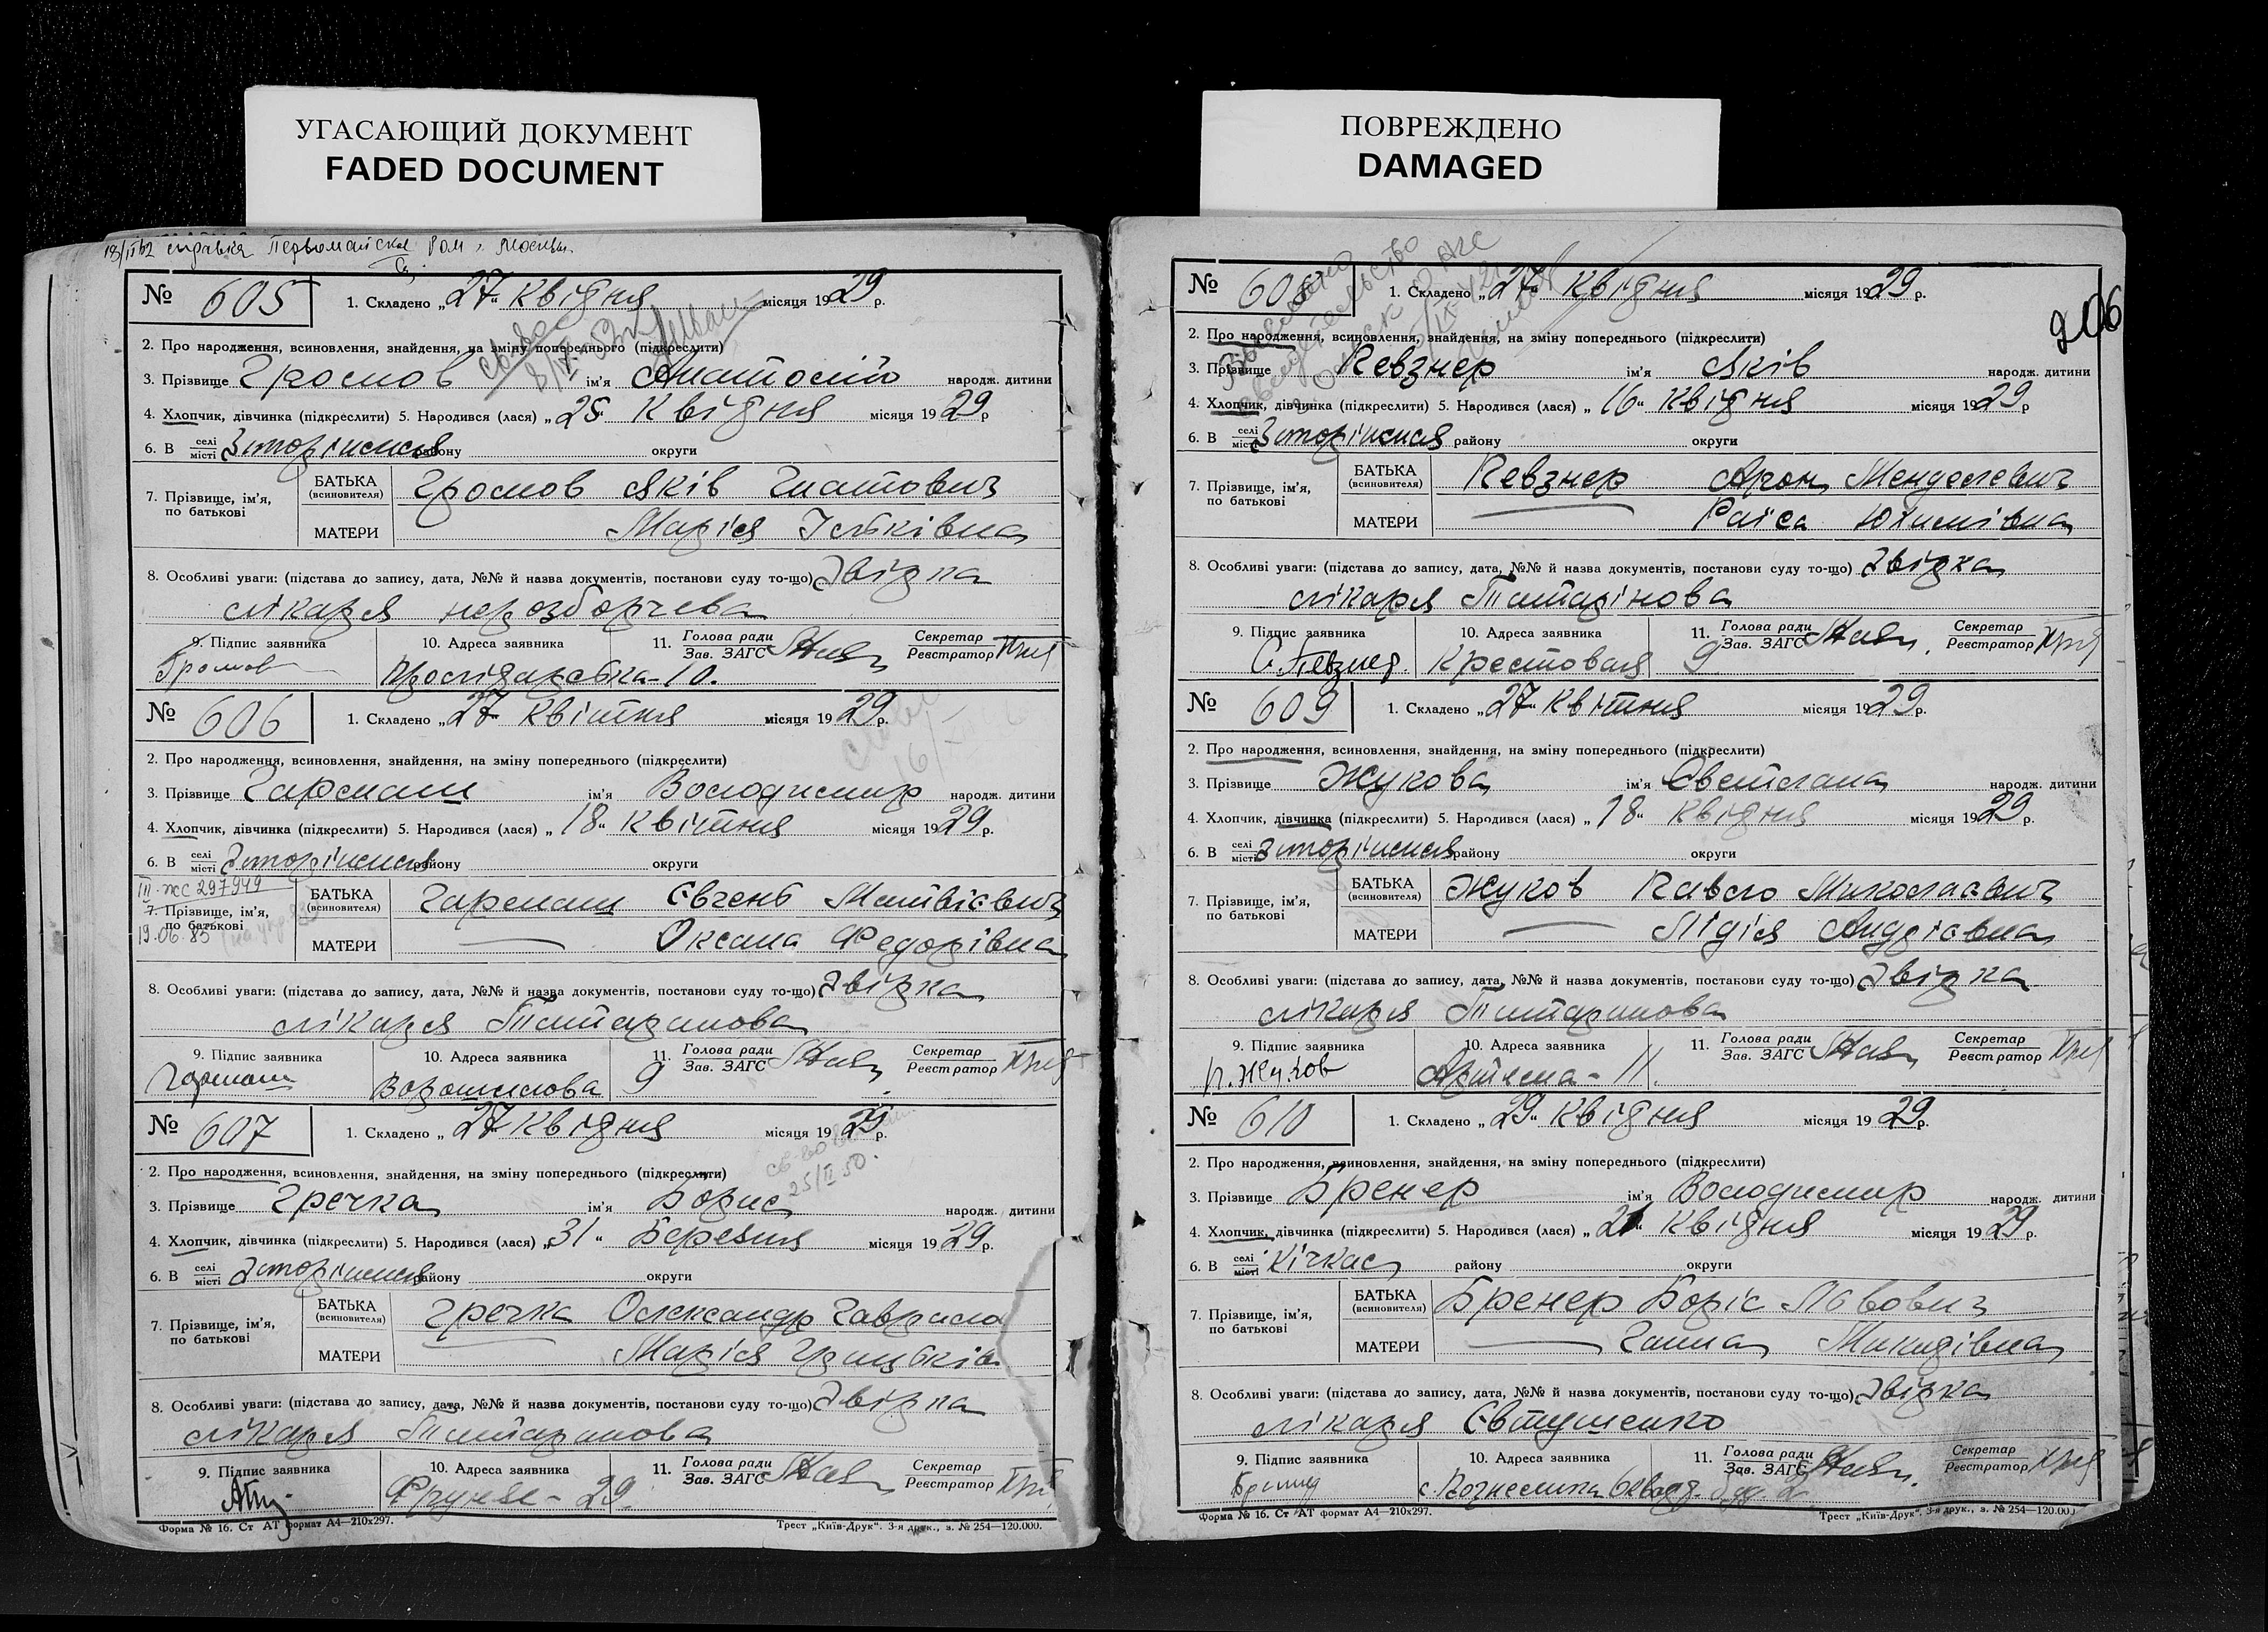 УГАСАЮЩИЙ ДОКУМЕНТ
FADED DOCUMENT
18/II 62 справка Первомайска
№ 605 1. Складено „27“ Квітня місяця 1929 р.
2. Про народження, всиновлення, знайдення, на зміну попереднього (підкреслити)
3. Прізвище Громов ім'я Анатолій народж. дитини
4. Хлопчик, дівчинка (підкреслити) 5. Народився (лася) „25“ Квітня місяця 1929 р
6. В селі місті Запоріжжя району округи
7. Прізвище, ім'я, по батькові
БАТЬКА (всиновителя) Громов Яків Гнатович
МАТЕРИ Марія
8. Особливі уваги: (підстава до запису, дата, №№ й назва документів, постанови суду то-що) Звідка
лікаря нерозборчева
9. Підпис заявника 10. Адреса заявника 11. Голова ради Зав. ЗАГС Секретар Реєстратор
Громов 10.
№ 606 1. Складено „27“ Квітня місяця 1929 р.
2. Про народження, всиновлення, знайдення, на зміну попереднього (підкреслити)
3. Прізвище Гармаш ім'я Володимир народж. дитини
4. Хлопчик, дівчинка (підкреслити) 5. Народився (лася) „18“ Квітня місяця 1929 р.
6. В селі місті Запоріжжя району округи
III-ЖС 297949
19.06.85
7. Прізвище, ім'я, по батькові
БАТЬКА (всиновителя) Гармаш Євгень Матвієвич
МАТЕРИ Оксана Федорівна
8. Особливі уваги: (підстава до запису, дата, №№ й назва документів, постанови суду то-що) Звідка
лікаря Татаринова
9. Підпис заявника 10. Адреса заявника 11. Голова ради Зав. ЗАГС Секретар Реєстратор
Гармаш Ворошилова 9
№ 607 1. Складено „27“ Квітня місяця 1929 р.
25/II 50.
2. Про народження, всиновлення, знайдення, на зміну попереднього (підкреслити)
3. Прізвище Гречка ім'я Борис народж. дитини
4. Хлопчик, дівчинка (підкреслити) 5. Народився (лася) „31“ Березня місяця 1929 р.
6. В селі місті Запоріжжя району округи
7. Прізвище, ім'я, по батькові
БАТЬКА (всиновителя) Гречка Олександр Гаврило
МАТЕРИ Марія
8. Особливі уваги: (підстава до запису, дата, №№ й назва документів, постанови суду то-що) Звідка
лікаря Татаринова
9. Підпис заявника 10. Адреса заявника 11. Голова ради Зав. ЗАГС Секретар Реєстратор
Фрунзе - 29.
Форма № 16. Ст АТ формат А4—210х297. Трест „Київ-Друк“. 3-я друк., з. № 254—120.000.
ПОВРЕЖДЕНО
DAMAGED
206
№ 608 1. Складено „27“ Квітня місяця 1929 р.
2. Про народження, всиновлення, знайдення, на зміну попереднього (підкреслити)
3. Прізвище Певзнер ім'я Яків народж. дитини
4. Хлопчик, дівчинка (підкреслити) 5. Народився (лася) „16“ Квітня місяця 1929 р
6. В селі місті Запоріжжя району округи
7. Прізвище, ім'я, по батькові
БАТЬКА (всиновителя) Певзнер Арон Менделевич
МАТЕРИ Раїса Юхимівна
8. Особливі уваги: (підстава до запису, дата, №№ й назва документів, постанови суду то-що) Звідка
лікаря Татарінова
9. Підпис заявника 10. Адреса заявника 11. Голова ради Зав. ЗАГС Секретар Реєстратор
Певзнер. Крестовая 9
№ 609 1. Складено „27“ Квітня місяця 1929 р.
2. Про народження, всиновлення, знайдення, на зміну попереднього (підкреслити)
3. Прізвище Жукова ім'я Светлана народж. дитини
4. Хлопчик, дівчинка (підкреслити) 5. Народився (лася) „18“ Квітня місяця 1929 р.
6. В селі місті Запоріжжя району округи
7. Прізвище, ім'я, по батькові
БАТЬКА (всиновителя) Жуков Павло Миколаєвич
МАТЕРИ Лідія Андрієвна
8. Особливі уваги: (підстава до запису, дата, №№ й назва документів, постанови суду то-що) Звідка
лікаря Татаринова
9. Підпис заявника 10. Адреса заявника 11. Голова ради Зав. ЗАГС Секретар Реєстратор
П. Жуков Артема - 11.
№ 610 1. Складено „29“ Квітня місяця 1929 р.
2. Про народження, всиновлення, знайдення, на зміну попереднього (підкреслити)
3. Прізвище Бренер ім'я Володимир народж. дитини
4. Хлопчик, дівчинка (підкреслити) 5. Народився (лася) „21“ Квітня місяця 1929 р.
6. В селі місті Кічкас району округи
7. Прізвище, ім'я, по батькові
БАТЬКА (всиновителя) Бренер Боріс Львович
МАТЕРИ Ганна
8. Особливі уваги: (підстава до запису, дата, №№ й назва документів, постанови суду то-що) Звідка
лікаря Євтушенко
9. Підпис заявника 10. Адреса заявника 11. Голова ради Зав. ЗАГС Секретар Реєстратор
Форма № 16. Ст АТ формат А4—210х297. Трест „Київ-Друк“. 3-я друк., з. № 254—120.00